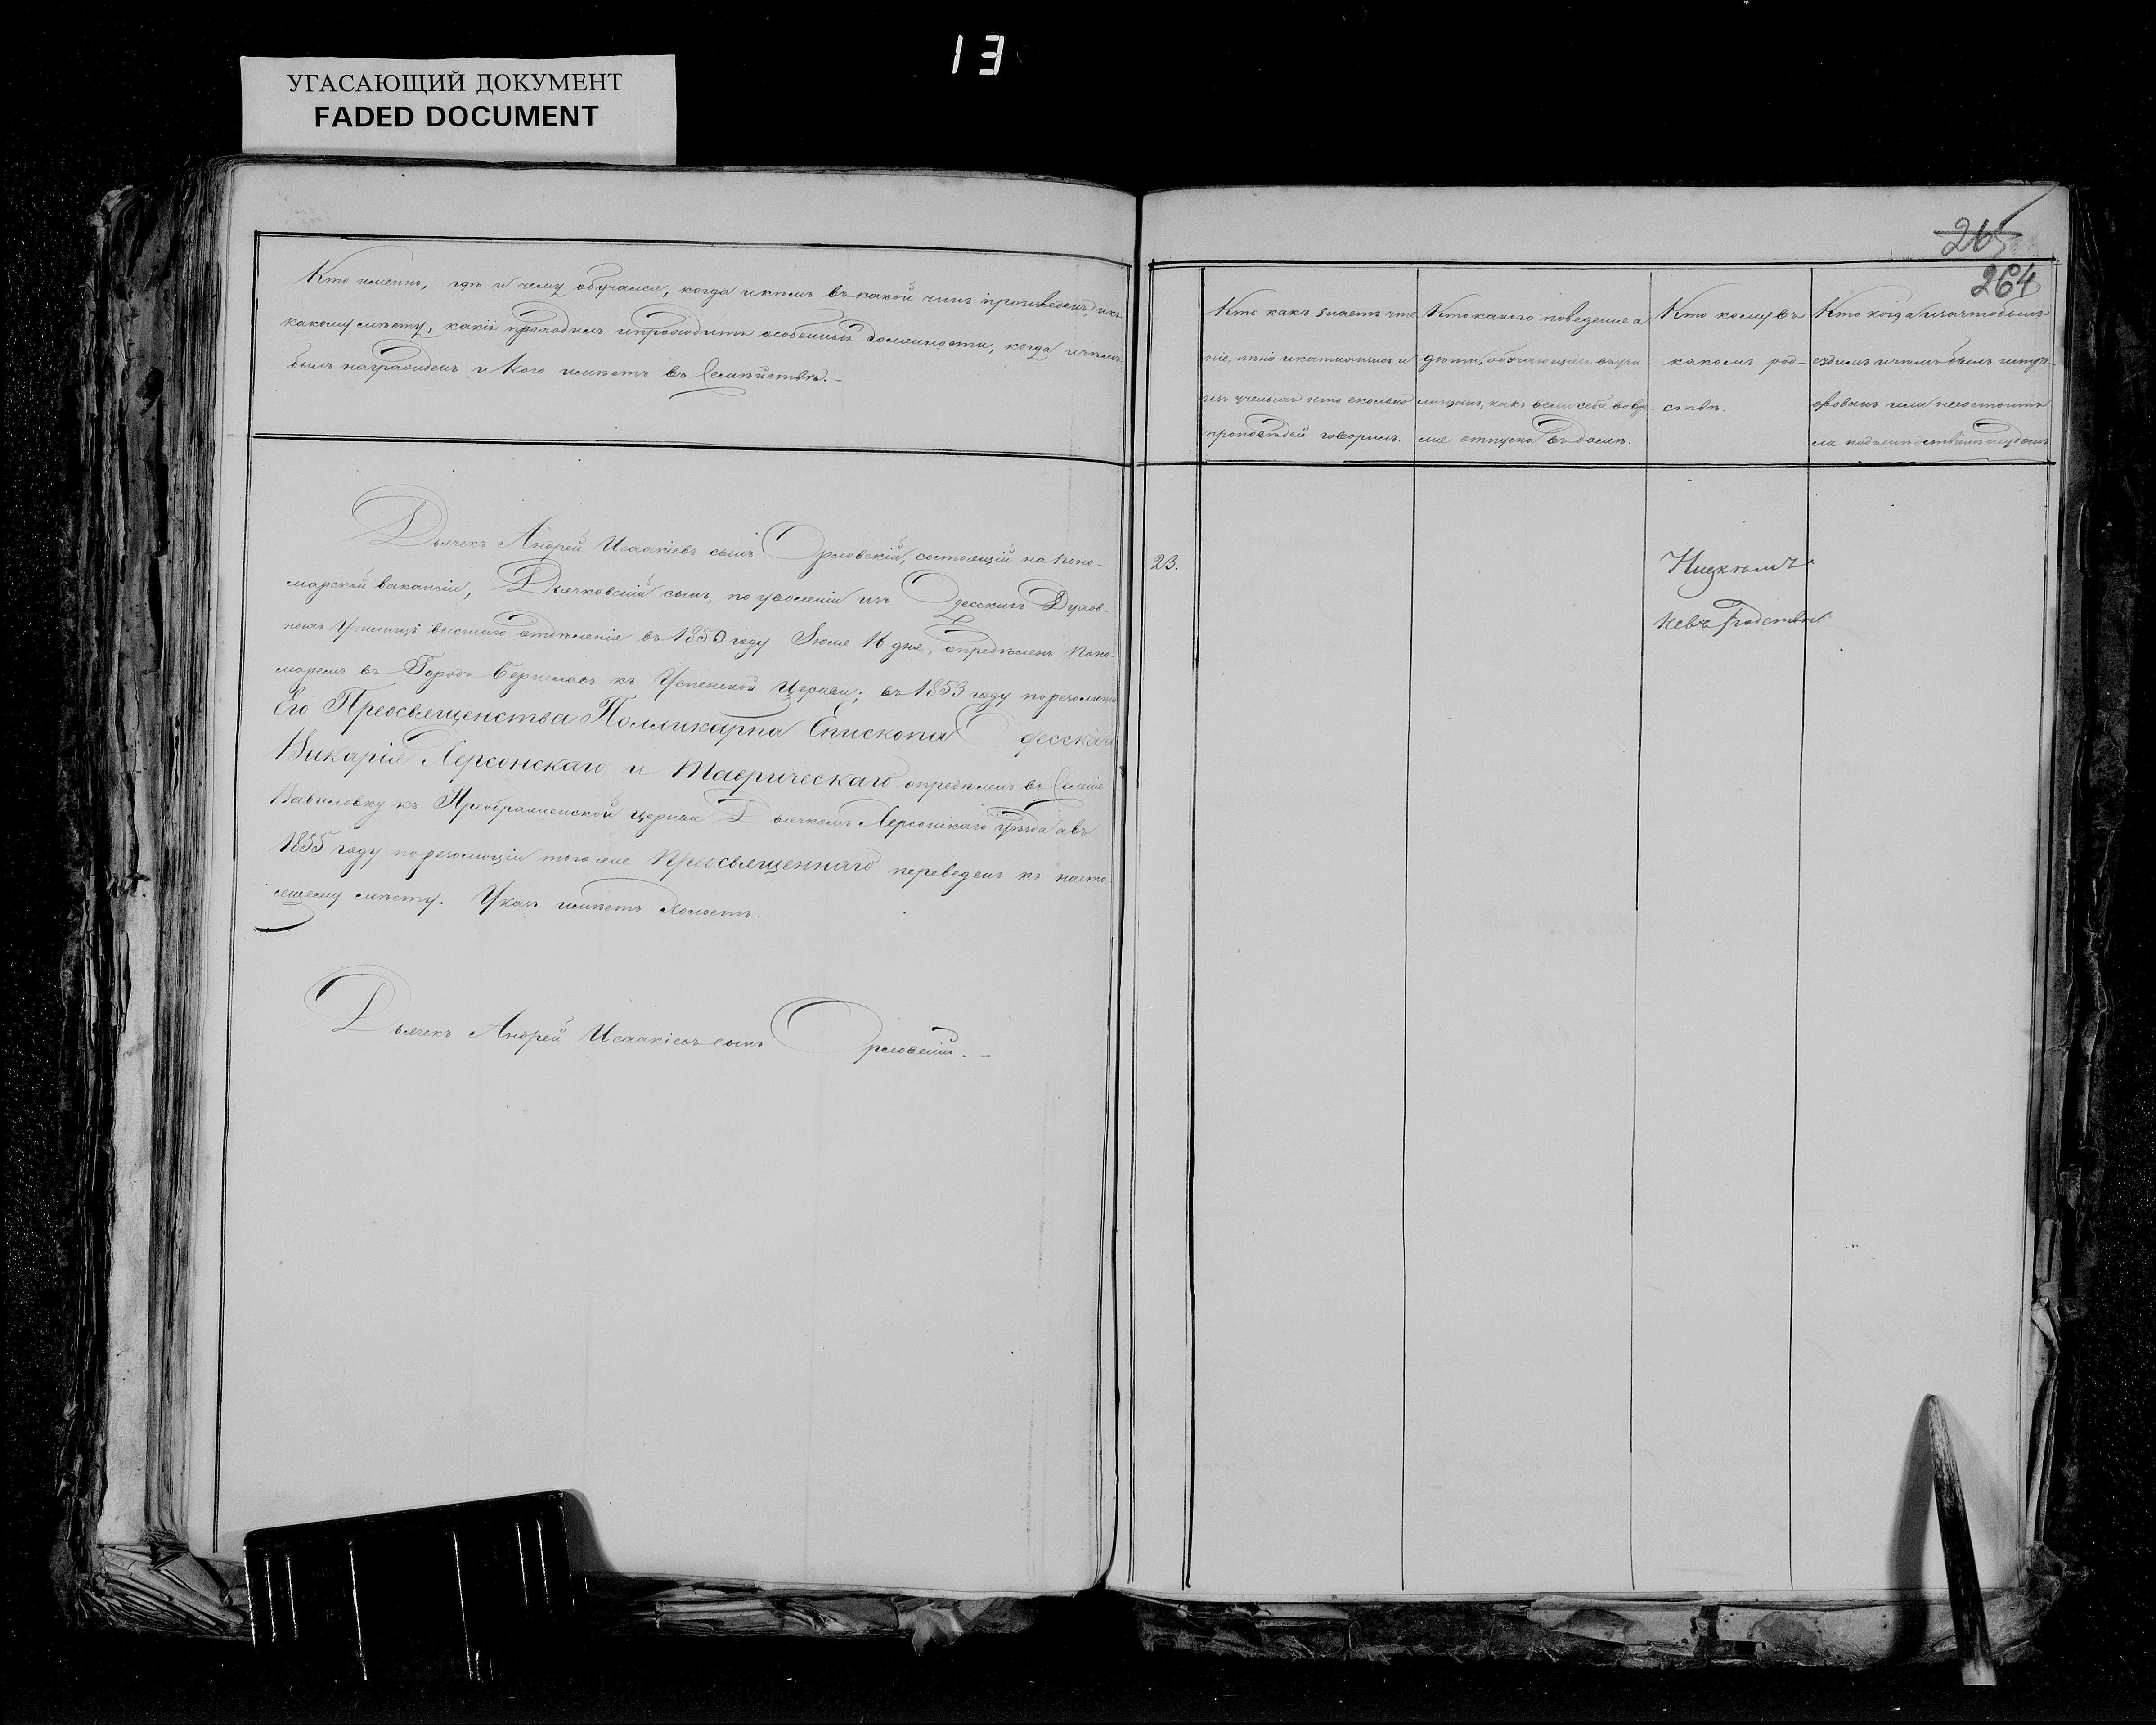 13
УГАСАЮЩИЙ ДОКУМЕНТ
FADED DOCUMENT
Кто именно, гдѣ и чему обучался, когда и кѣмъ въ какой чинъ произведенъ, и къ
какому мѣсту, какіе проходилъ и проходитъ особенныя должности, когда и чѣмъ
былъ награжденъ и кого имѣетъ въ Семействѣ. -
Дьячекъ Андрей Исаакіевъ сынъ Орловскій, состоящій на поно-
марской вакансіи, Дьячковскій сынъ, по уволеніи изъ Одесскихъ Духов-
ныхъ Училищъ высшаго отдѣленія въ 1850 году Іюля 16 дня, опредѣленъ Поно-
маремъ въ Городъ Бериславъ къ Успенской Церкви; въ 1853 году по резолюціи
Его Преосвященства Поликарпа Епископа Одесскаго
Викарія Херсонскаго и Таврическаго опредѣленъ въ Селеніе
Вавиловку къ Преображенской церкви Дьячкомъ Херсонскаго уѣзда а въ
1855 году по резолюціи того же Преосвященнаго переведенъ къ насто-
ящему мѣсту. Указъ имѣетъ Холостъ.
Дьячекъ Андрей Исаакіевъ сынъ Орловскій. -
265
264
Кто какъ знаетъ чте-
ніе, пѣніе и катихизисъ и
изъ ученыхъ кто сколько
проповѣдей говорилъ.
Кто какого поведенія а
дѣти, обучающіеся въ учи-
лищахъ, какъ вели себя во вре-
мя отпуска въ домъ.
Кто кому въ
какомъ род-
ствѣ.
Кто когда и за что былъ
судимъ и чѣмъ былъ штра-
фованъ или не состоитъ
ли подъ слѣдствіемъ и судомъ
23.
Ни съ кѣмъ
не въ родствѣ